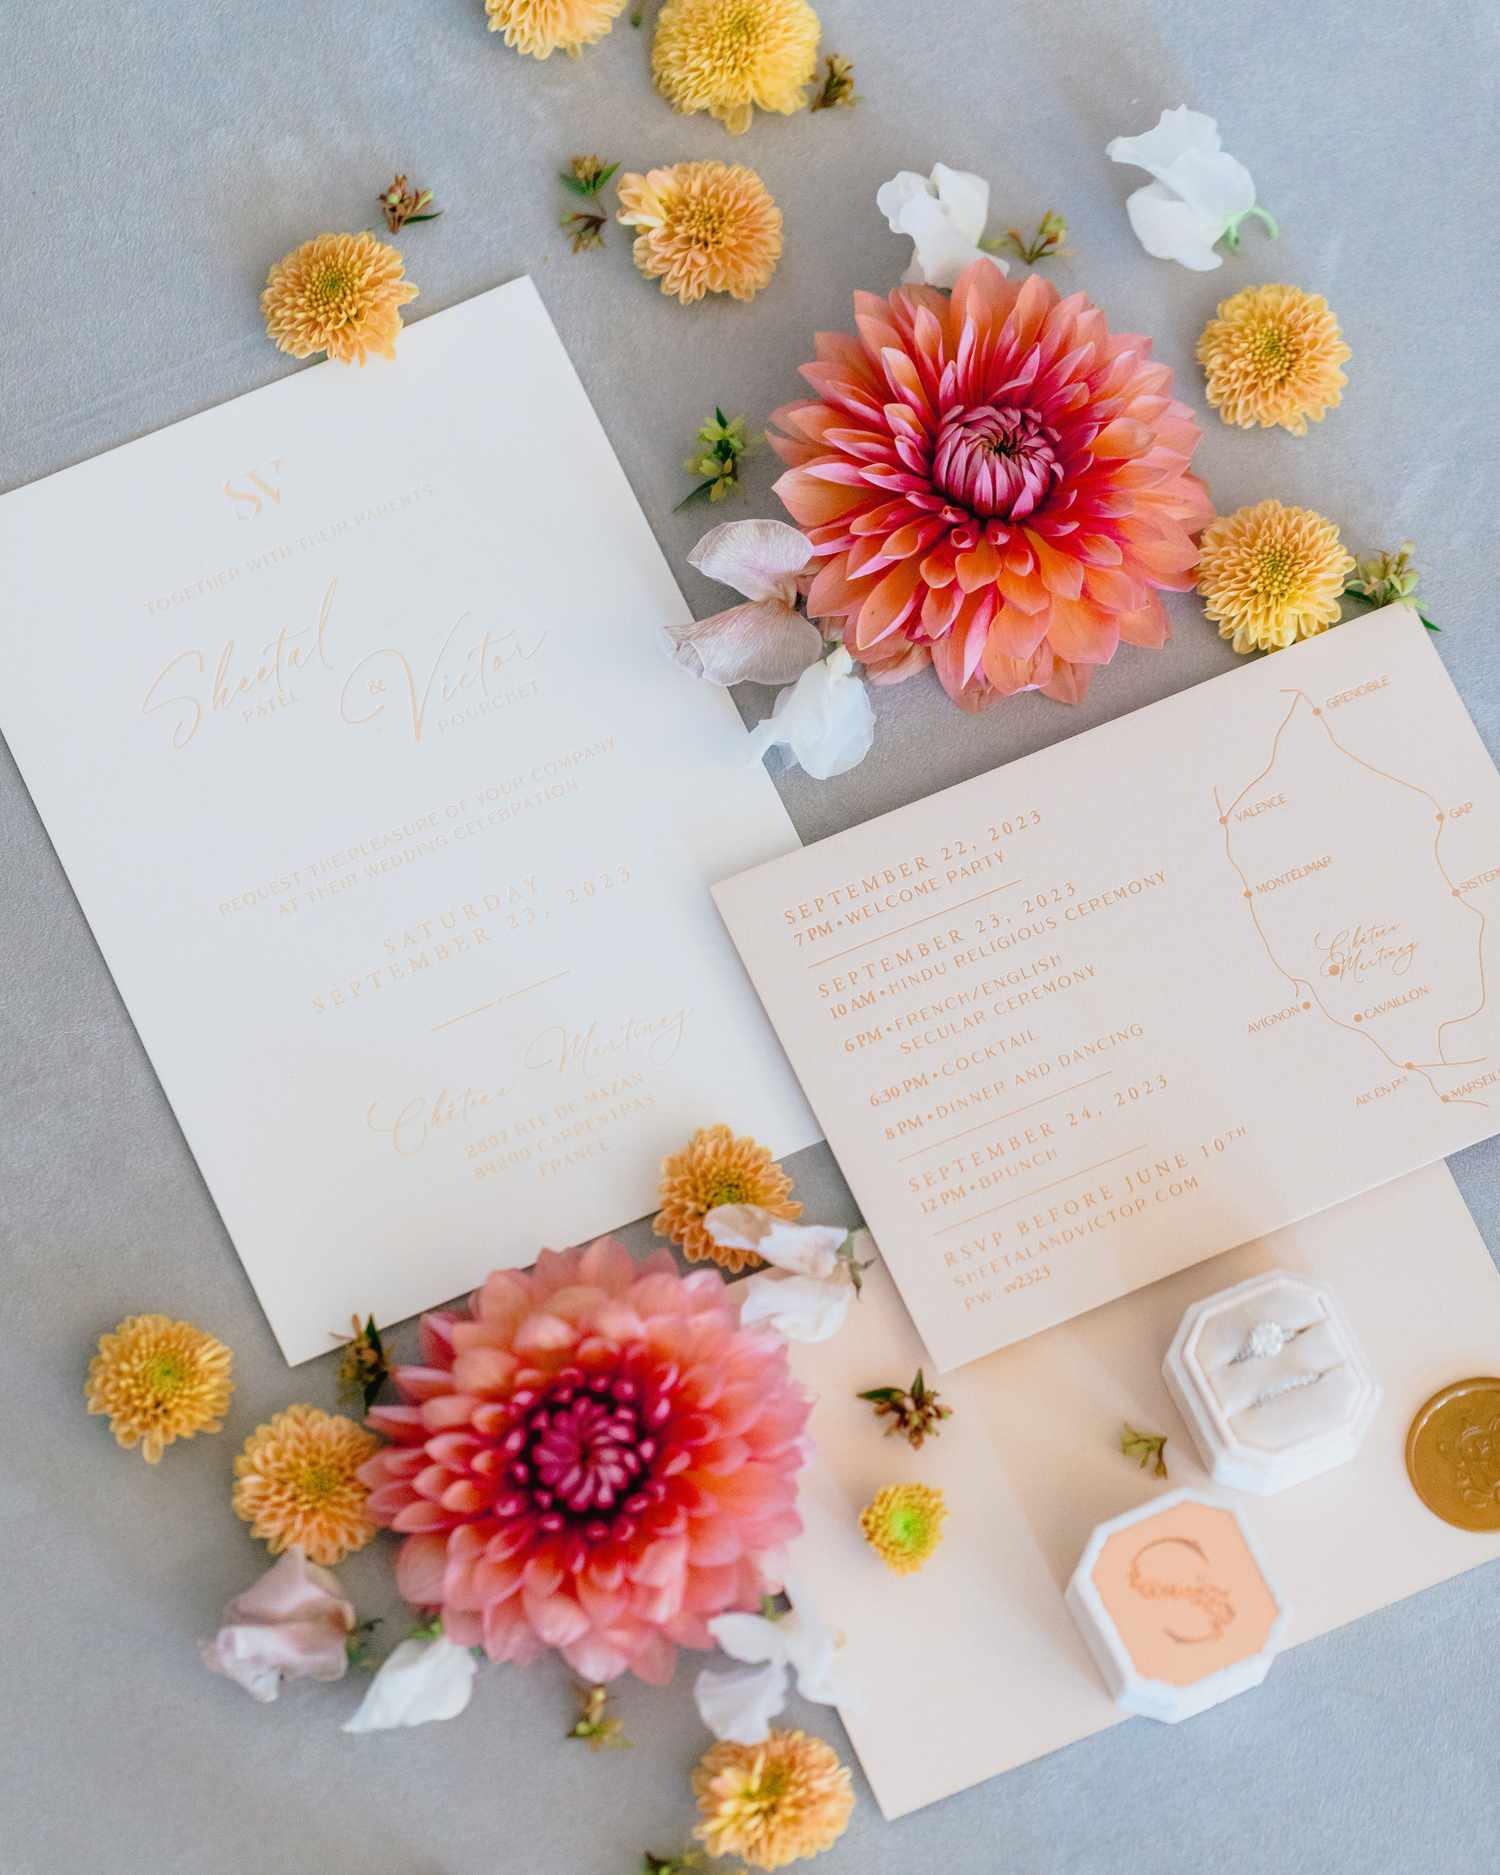 SV
TOGETHER WITH THEIR PARENTS
Sheetal & Victor
PATEL POURCHET
REQUEST THE PLEASURE OF YOUR COMPANY
AT THEIR WEDDING CELEBRATION
SATURDAY
SEPTEMBER 23, 2023
Château Martinez
RTE DE MAZAN
CARPENTRAS
FRANCE
SEPTEMBER 22, 2023
7 PM • WELCOME PARTY
SEPTEMBER 23, 2023
10 AM • HINDU RELIGIOUS CEREMONY
6 PM • FRENCH/ENGLISH
SECULAR CEREMONY
6:30 PM • COCKTAIL
8 PM • DINNER AND DANCING
SEPTEMBER 24, 2023
12 PM • BRUNCH
RSVP BEFORE JUNE 10TH
SHEETALANDVICTOP.COM
PW: sv2323
GRENOBLE
VALENCE
GAP
MONTÉLIMAR
SISTER
Château
Martinez
AVIGNON
CAVAILLON
AIX EN
MARSEIL
S